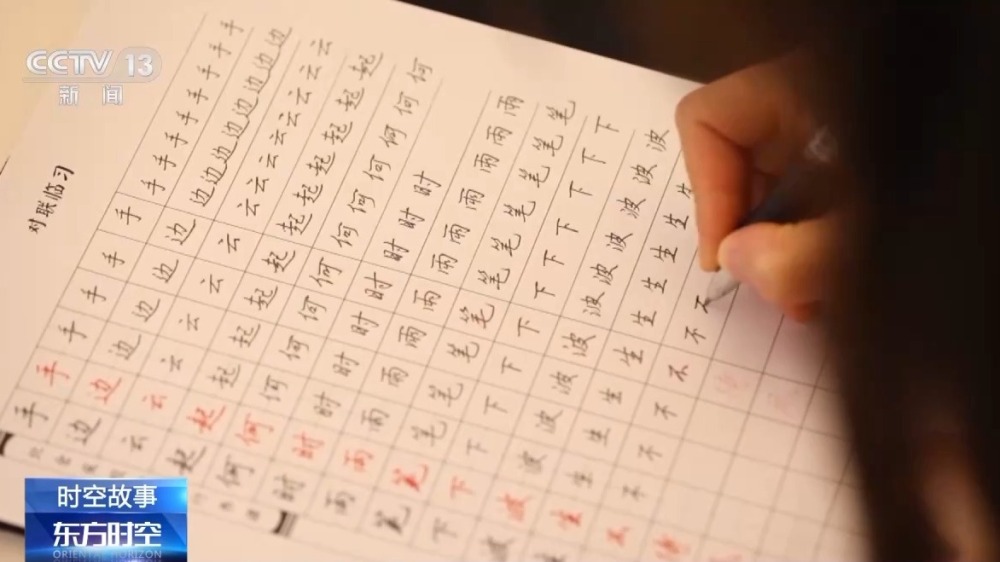 CCTV 13
新闻
对联临习
手手手手手手手手手手手手手
边边边边边边边边边边边边边
云云云云云云云云云云云云云
起起起起起起起起起起起起
何何何何何何何何何何何何
时时时时时时时时时
雨雨雨雨雨雨雨雨雨雨雨
笔笔笔笔笔笔笔笔笔笔笔
下下下下下下下下下下
波波波波波波波波波波
生生生生生生生生
不不不不不不
时空故事
东方时空
ORIENTAL HORIZON